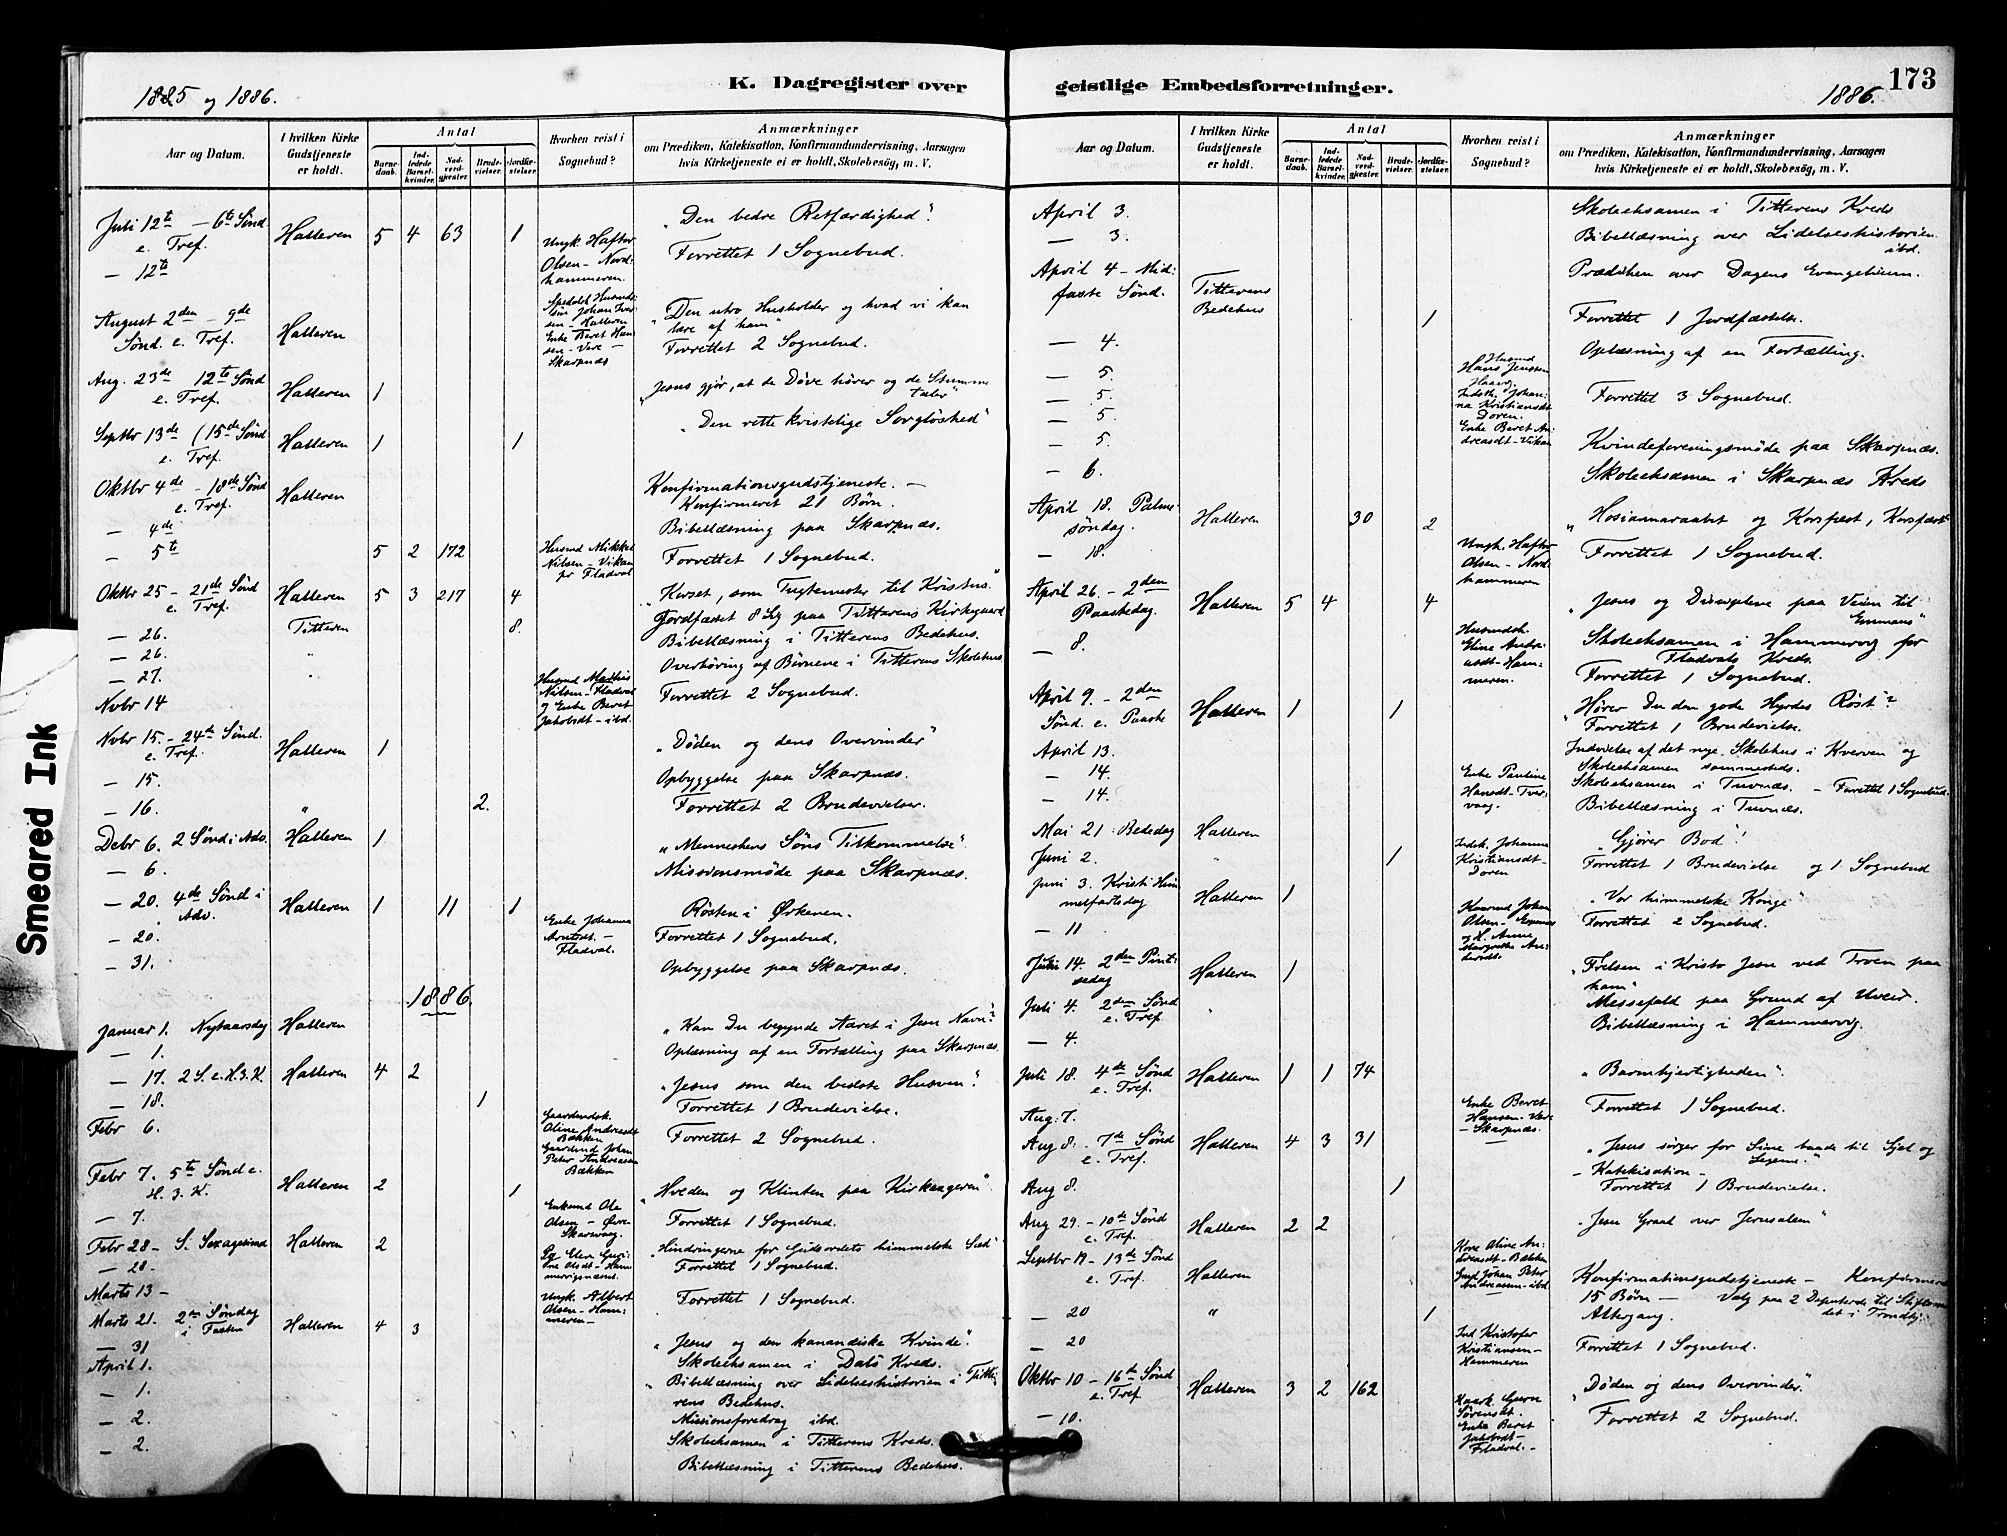 1885 og 1886.
K. Dagregister over
Aar og Datum.
I hvilken Kirke
Gudstjeneste
er holdt.
Antal
Barne-
daab.
Ind-
ledede
Barsel-
kvinder.
Nad-
verd-
gjester.
Brude-
vielser.
Jordfæ-
stelser.
Hvorhen reist i
Sognebud?
Anmærkninger
om Prædiken, Katekisation, Konfirmandundervisning, Aarsagen
hvis Kirketjeneste ei er holdt, Skolebesøg, m. V.
Juli 12te — 6te Sønd. Halteren 5 4 63 1 „Den bedre Retfærdighed".
e. Tref.
— 12te Ungk. Haftor Olsen - Nordhammeren. Forrettet 1 Sognebud.
August 2den — 9de Halteren „Den utro Husholder og hvad vi kan
Sønd. e. Tref. lære af ham"
Johan Iversen - Halteren
Enke Beret Hansen - Vere - Skarpnæs Forrettet 2 Sognebud.
Aug. 23de 12te Sønd Halteren 1 „Jesus gjør, at de Døve hører og de Stumme
e. Tref. taler"
Septbr 13de (15de Sønd Halteren 1 1 „Den rette kristelige Sorgløshed"
e. Tref.
Oktbr 4de — 18de Sønd Halteren Konfirmationsgudstjeneste. —
e. Tref. Konfirmeret 21 Børn.
— 4de Bibellæsning paa Skarpnæs.
— 5te 5 2 172 Husmd Mikkel Nilsen - Vikan pr Fladval Forrettet 1 Sognebud.
Oktbr 25 — 21de Sønd Halteren 5 3 217 4 „Korset, som Tugtemester til Kristus."
e. Tref. Titteren 8. Jordfæstet 8 Lig paa Titterens Kirkegaard
— 26. Bibellæsning i Titterens Bedehus.
— 26. " Overhøring af Børnene i Titterens Skolehus.
— 27.
Nvbr 14 Husmd Mathis Nilsen - Fladval og Enke Beret Jakobsdt - ibd. Forrettet 2 Sognebud.
Nvbr 15. — 24de Sønd. Halteren 1 „Døden og dens Overvinder"
e. Tref.
— 15. Opbyggelse paa Skarpnæs.
— 16. " 2. Forrettet 2 Brudevielser.
Debr 6. 2 Sønd i Adv. Halteren 1 „Menneskens Søns Tilkommelse".
— 6. Missionsmøde paa Skarpnæs.
— 20. 4de Sønd i Halteren 1 11 1 Røsten i Ørkenen.
Adv.
— 20. Enke Johanna Arntsdt. - Fladval. Forrettet 1 Sognebud.
— 31. Opbyggelse paa Skarpnæs.
1886.
Januar 1. Nytaarsdag Halteren „Kan Du begynde Aaret i Jesu Navn?
— 1. Oplæsning af en Fortælling paa Skarpnæs.
— 17. 2 S. e. H. 3. K. Halteren 4 2 „Jesus som den bedste Husven".
— 18. 1 Forrettet 1 Brudevielse.
Febr 6. Aline Andreasdt Bækken
Johan Peter Andreasen Bækken Forrettet 2 Sognebud.
Febr 7. 5te Sønd e. Halteren 2 1 „Hveden og Klinten paa Kirkeageren".
H. 3. K.
— 7. Enkemd Ole Olsen - Øvre Skarvaag. Forrettet 1 Sognebud.
Febr 28 — S. Sexagesima Halteren 2 „Hindringerne for Gudsordets himmelske Sæd"
— 28. Forrettet 1 Sognebud.
Marts 13 — Ungk. Albert Olsen - Hammeren - Forrettet 1 Sognebud.
Marts 21. 2den Søndag Halteren 4 3 „Jesus og den kananæiske Kvinde".
i Fasten
— 31 Skoleeksamen i Dals Kreds.
April 1. „Bibellæsning over Lidelseshistorien i Titte-
— 1. rens Bedehus.
Missionsforedrag ibd.
— 2. Skoleeksamen i Titterens Kreds.
— 2. Bibellæsning i Titterens Bedehus.
geistlige Embedsforretninger.
1886.
173
Aar og Datum.
I hvilken Kirke
Gudstjeneste
er holdt.
Antal
Barne-
daab.
Ind-
ledede
Barsel-
kvinder.
Nad-
verd-
gjester.
Brude-
vielser.
Jordfæ-
stelser.
Hvorhen reist i
Sognebud?
Anmærkninger
om Prædiken, Katekisation, Konfirmandundervisning, Aarsagen
hvis Kirketjeneste ei er holdt, Skolebesøg, m. V.
April 3. Skoleeksamen i Titterens Kreds
— 3. Bibellæsning over Lidelseshistorien
ibd.
April 4 — Mid- Titterens Prædiken over Dagens Evangelium.
faste Sønd. Bedehus 1 Forrettet 1 Jordfæstelse.
— 4. Oplæsning af en Fortælling.
— 5. Husmd Hans Jenssen
— 5. Johanna Kristiansdt Doren. Forrettet 3 Sognebud.
— 5. Enke Beret Andreasdt - Vikan
— 5. Kvindeforeningsmøde paa Skarpnæs.
— 6. Skoleeksamen i Skarpnæs Kreds
April 18. Palme- Halteren 30 2 „Hosiannaraabet og Korsfæst, Korsfæst"
søndag.
— 18. Ungk. Haftor Olsen - Nordhammeren Forrettet 1 Sognebud.
April 26. — 2den Halteren 5 4 4 „Jesus og Disciplene paa Veien til
Paaskedag. Emmaus"
— 8. Eline Andreasdt - Hammeren. Skoleeksamen i Hammervog for
Fladvals Kreds.
Forrettet 1 Sognebud.
April 9. — 2den Halteren 1 1 „Hører Du den gode Hyrdes Røst"?
Sønd. e. Paaske Forrettet 1 Brudevielse.
April 13. Indvielse af det nye Skolehus i Kverven og
Skoleeksamen sammesteds.
— 14. Enke Pauline Hansdt - Skoleeksamen i Tuvnæs. — Forrettet 1 Sognebud.
— 14. Bibellæsning i Tuvnæs.
Mai 21. Bededag Halteren „Gjører Bod"!
Juni 2. " 1 Johanna Kristiansdt - Doren Forrettet 1 Brudevielse og 1 Sognebud
Juni 3. Kristi Him- Halteren 1 „Vor himmelske Konge"
melfartsdag
— 11 Johan Olsen - Anne Margrethe Forrettet 2 Sognebud.
Juni 14. 2den Pint- Halteren 1 „Frelsen i Kristo Jesu ved Troen paa
sedag ham"
Juli 4. 2den Sønd " Messefald paa Grund af Uveir.
e. Tref.
— 4. Bibellæsning i Hammervog.
Juli 18. 4de Sønd Halteren 1 1 74 „Barmhjertigheden".
e. Tref.
Aug. 7. Enke Beret Hansen - Vere - Skarpnæs. Forrettet 1 Sognebud.
Aug 8. — 7de Sønd Halteren 4 3 31 „Jesus sørger for Sine baade til Sjel og
e. Tref. Legeme."
— Katekisation —
Aug 8. 1 Forrettet 1 Brudevielse.
Aug 29. — 10de Sønd Halteren 2 2 „Jesu Graad over Jerusalem"
e. Tref.
Septbr 19 — 13de Sønd Halteren Kone Aline Andreasdt - Bækken
e. Tref. Johan Peter Andreasen - ibd. Konfirmationsgudstjeneste — Konfirmeret
15 Børn — Valg paa 2 Deputerede til Stiftsmø-
det i Trondhj.
20 " 1 Altergang.
— 20 Ind Kristofer Kristiansen - Hammeren Forrettet 1 Sognebud.
Oktbr 10 — 16de Sønd Halteren 3 2 162 „Døden og dens Overvinder".
e. Tref.
— 10. Gurn Sørensdt.
Enke Beret Jakobsdt - Fladval. - Forrettet 2 Sognebud.
Smeared Ink